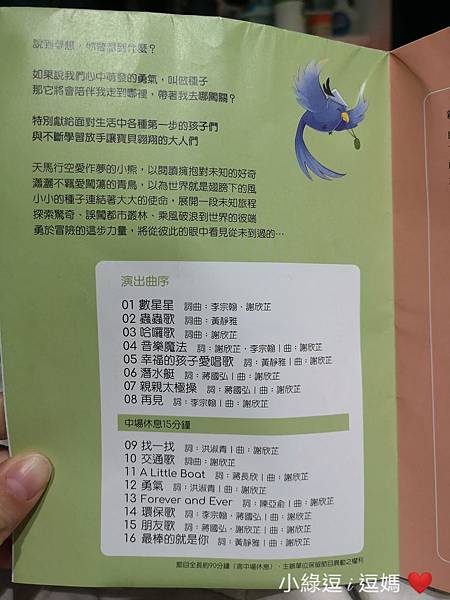 說到夢想，你會想到什麼？
如果說我們心中萌發的勇氣，叫做種子
那它將會陪伴我走到哪裡，帶著我去哪闖關？
特別獻給面對生活中各種第一步的孩子們
與不斷學習放手讓寶貝翱翔的大人們
天馬行空愛作夢的小熊，以閱讀擁抱對未知的好奇
瀟灑不羈愛闖蕩的青鳥，以為世界就是翅膀下的風
小小的種子連結著大大的使命，展開一段未知旅程
探索驚奇、誤闖都市叢林、乘風破浪到世界的彼端
勇於冒險的這步力量，將從彼此的眼中看見從未到過的…
演出曲序
01 數星星 詞曲：李宗翰、謝欣芷
02 蟲蟲歌 詞曲：黃靜雅
03 哈囉歌 詞曲：謝欣芷
04 音樂魔法 詞：謝欣芷、李宗翰｜曲：謝欣芷
05 幸福的孩子愛唱歌 詞：黃靜雅｜曲：謝欣芷
06 潛水艇 詞：蔣國弘｜曲：謝欣芷
07 親親太極操 詞：蔣國弘｜曲：謝欣芷
08 再見 詞：李宗翰｜曲：謝欣芷
中場休息15分鐘
09 找一找 詞：洪淑青｜曲：謝欣芷
10 交通歌 詞曲：謝欣芷
11 A Little Boat 詞：蔣長欣｜曲：謝欣芷
12 勇氣 詞：洪淑青｜曲：謝欣芷
13 Forever and Ever 詞：陳亞俞｜曲：謝欣芷
14 環保歌 詞：李宗翰、蔣國弘｜曲：謝欣芷
15 朋友歌 詞：蔣國弘、謝欣芷｜曲：謝欣芷
16 最棒的就是你 詞：黃靜雅｜曲：謝欣芷
節目全長約90分鐘（含中場休息）、主辦單位保留節目異動之權利
小綠逗 i 逗媽